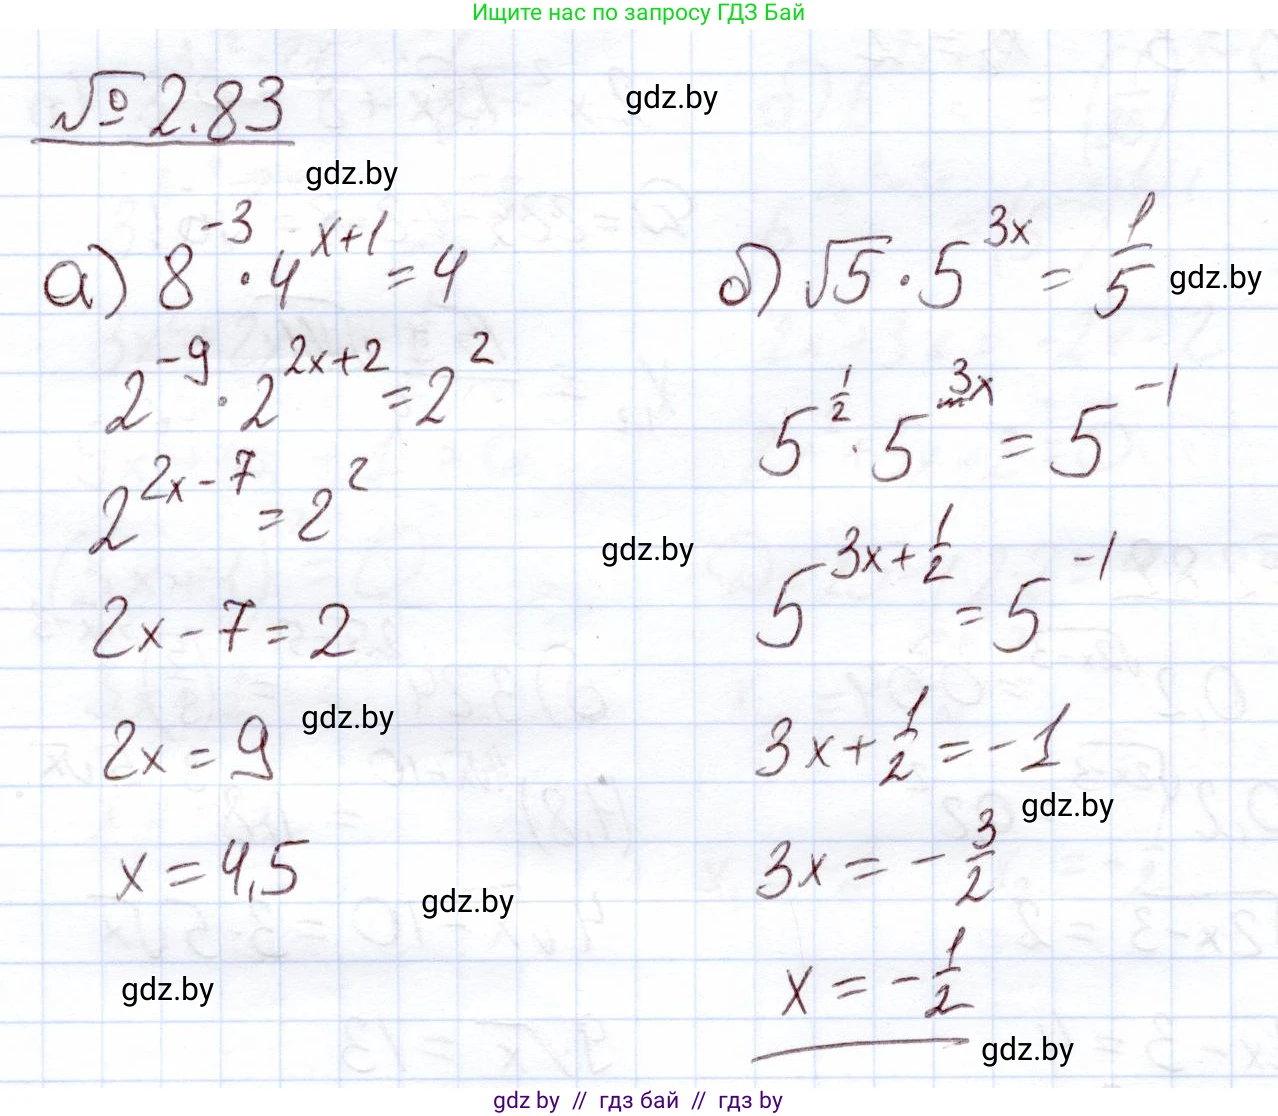 Ищите нас по запросу ГДЗ Бай
№ 2.83
gdz.by
gdz.by
а) 8^{-3} · 4^{x+1} = 4
2^{-9} · 2^{2x+2} = 2^2
2^{2x-7} = 2^2
2x - 7 = 2
2x = 9
gdz.by
x = 4,5
gdz.by
gdz.by
б) √5 · 5^{3x} = 1/5
gdz.by
5^{1/2} · 5^{3x} = 5^{-1}
gdz.by
5^{3x+1/2} = 5^{-1}
3x + 1/2 = -1
gdz.by
3x = - 3/2
x = - 1/2
gdz.by
gdz by // гдз бай // гдз by